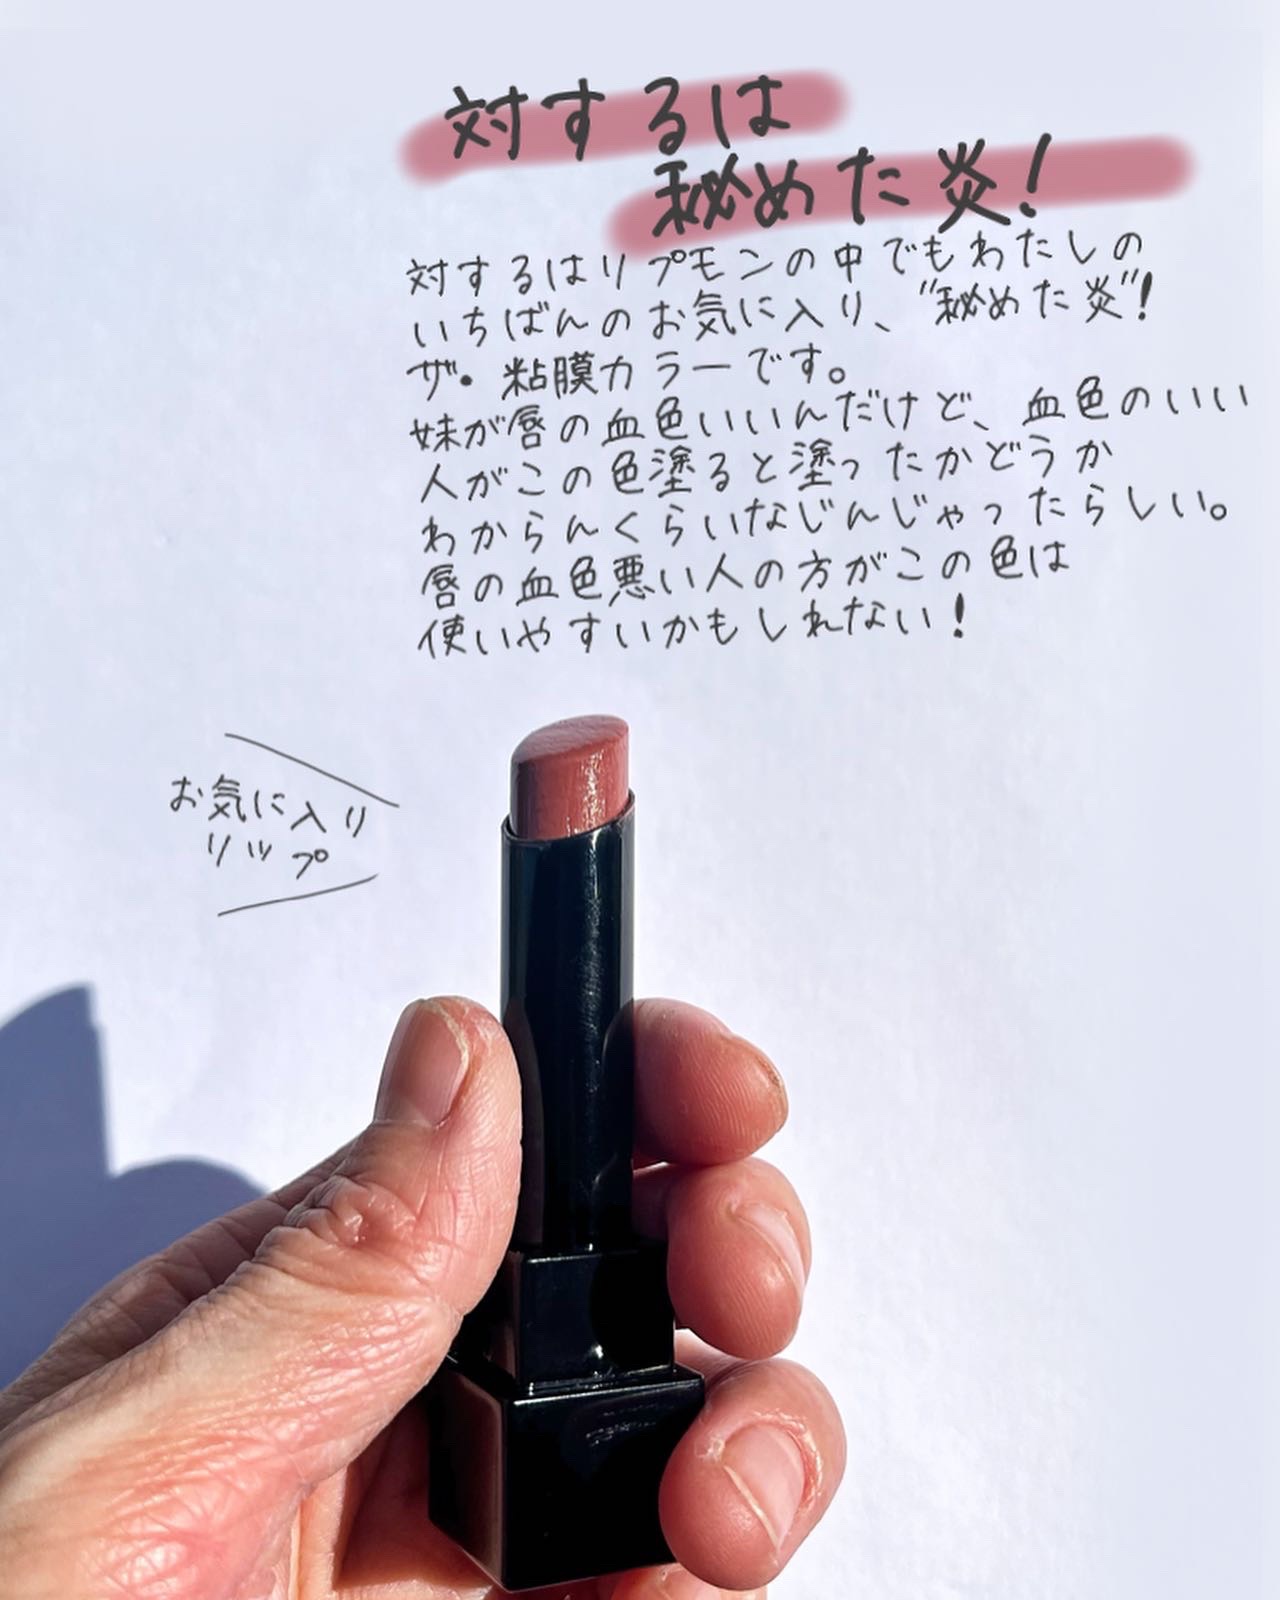 対するは
秘めた炎!
対するはリプモンの中でもわたしの
いちばんのお気に入り、"秘めた炎"!
ザ・粘膜カラーです。
妹が唇の血色いいんだけど、血色のいい
人がこの色塗ると塗ったかどうか
わからんくらいなじんじゃったらしい。
唇の血色悪い人の方がこの色は
使いやすいかもしれない!
お気に入り
リップ